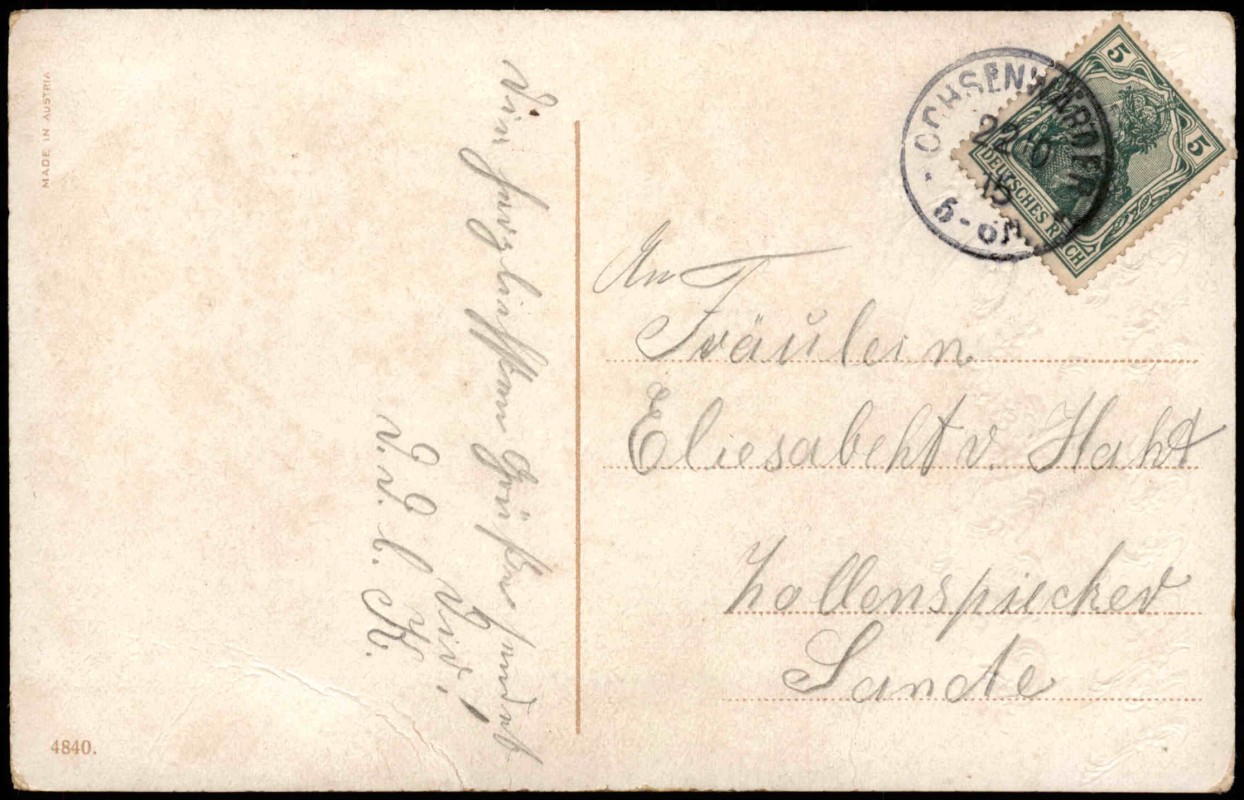 MADE IN AUSTRIA
Die herzlichsten Grüße sendet
Dir!
K.
4840.
OCHSENWÄRDER
15
5-6N.
5
5
DEUTSCHES REICH
An
Fräulein
Eliesabeht v. Haht
Zollenspiecker
Sande